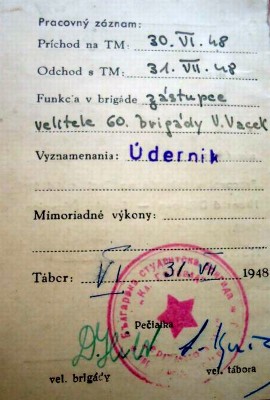 Pracovný záznam:
Príchod na TM: 30. VI. 48
Odchod s TM: 31. VII. 48
Funkcia v brigáde zástupce
velitele 60. brigády V. Vacek
Vyznamenania: Úderník
Mimoriadné výkony:
Tábor: VI 31. VII 1948
Pečiatka
vel. brigády vel. tábora